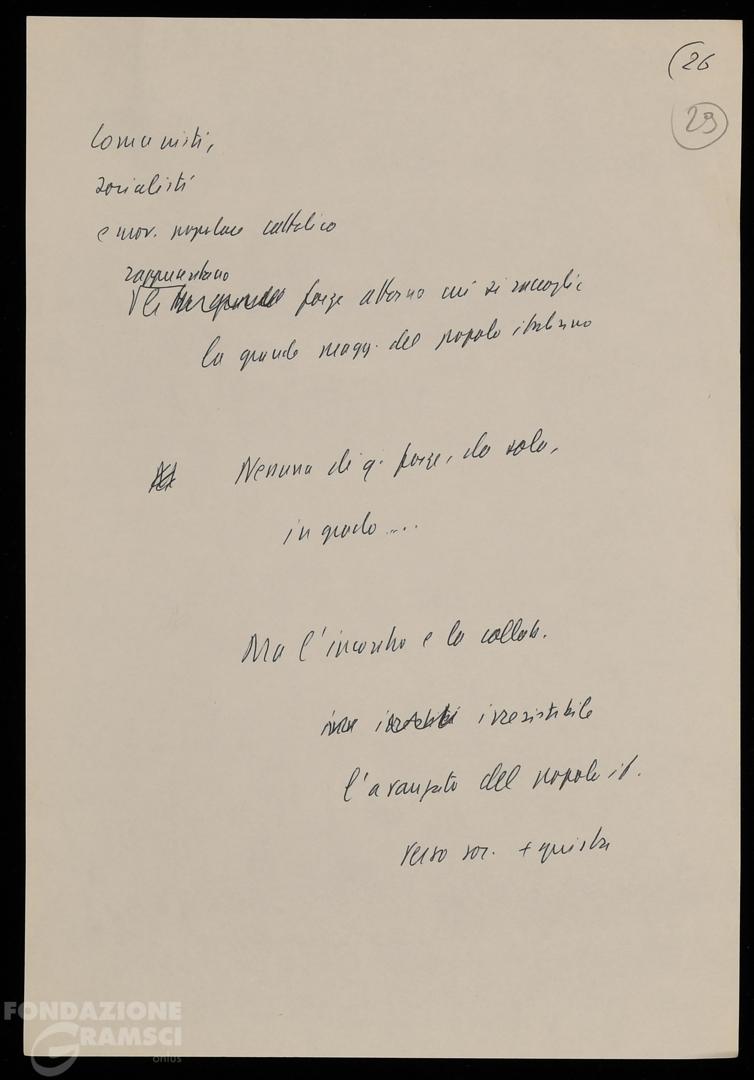 (26
29
Comunisti,
socialisti
e mov. popolare cattolico
rappresentano
le forze attorno cui si raccoglie
la grande magg. del popolo italiano
Nessuna di q. forze, da sola,
in grado ....
Ma l'incontro e la collab.
irresistibile
l'avanzata del popolo it.
verso soc. + giusta
FONDAZIONE
GRAMSCI
onlus